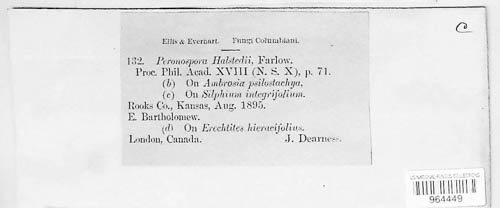 C
Ellis & Everhart. Fungi Columbiani.
132. Peronospora Halstedii, Farlow.
Proc. Phil. Acad. XVIII (N. S. X), p. 71.
(b) On Ambrosia psilostachya,
(c) On Silphium integrifolium.
Rooks Co., Kansas, Aug. 1895.
E. Bartholomew.
(d) On Erechtites hieracifolius.
London, Canada. J. Dearness.
US NATIONAL FUNGUS COLLECTIONS
964449